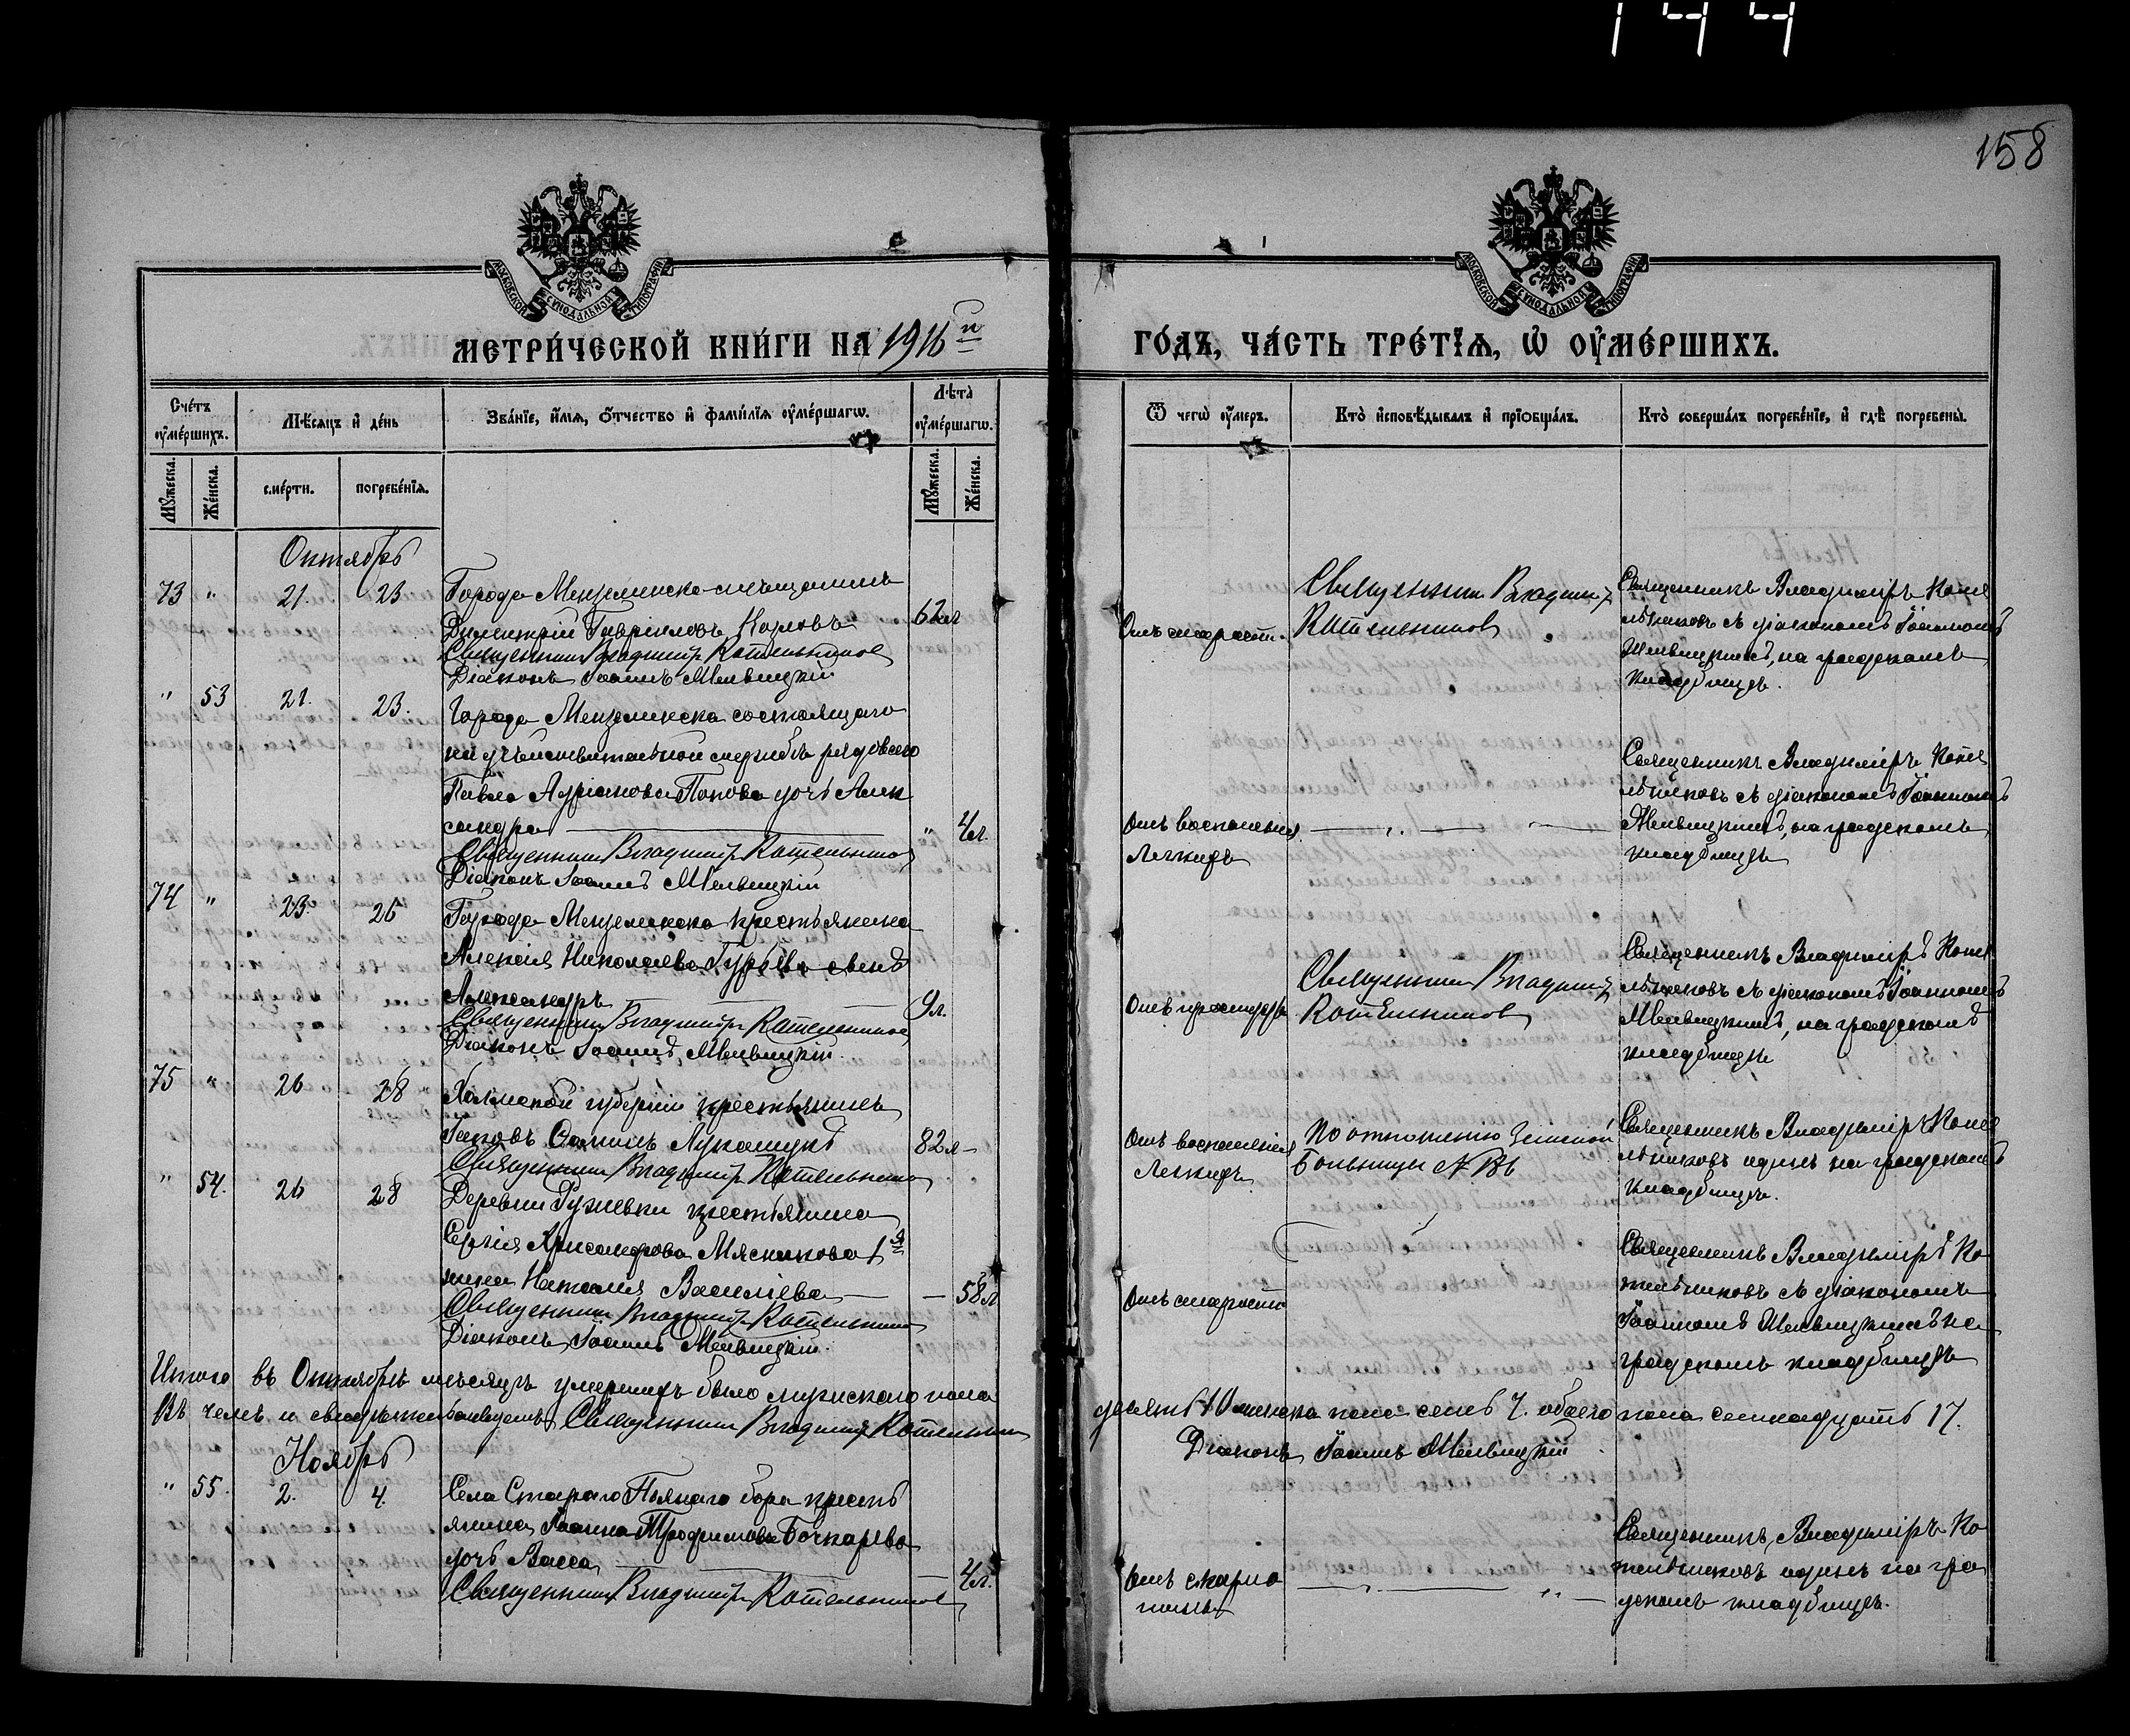 144
158
МОСКОВСКОЙ СУНОДАЛЬНОЙ ТИПОГРАФІИ
МОСКОВСКОЙ СУНОДАЛЬНОЙ ТИПОГРАФІИ
МЕТРИ́ЧЕСКОЙ КНИ́ГИ НА 1916й
ГО́ДЪ, ЧА́СТЬ ТРЕ́ТІѦ, Ѡ ОУ҆МЕ́РШИХЪ.
Сче́тъ оумершихъ.
Мѣсяцъ и день
Званіе, имя, отчество и фамилія оумершагѡ.
Лѣта оумершагѡ.
Мужеска.
Женска.
смерти.
погребенія.
Мужеска.
Женска.
Ѿ чегѡ оумеръ.
Кто исповѣдывалъ и пріобщалъ.
Кто совершалъ погребеніе, и гдѣ погребены.
Октябрь
73 " 21. 23
Города Мензелинска мѣщанинъ
Димитрій Гавріиловъ Карповъ
62 л
Священник Владимир Котельников
Діаконъ Іоаннъ Мельвицкій
Отъ старости.
Священник Владимир
Котельников
Священникъ Владиміръ Коте
льниковъ съ діакономъ Іоанномъ
Мельвицкимъ, на градскомъ
кладбищѣ.
" 53 21. 23.
Города Мензелинска состоящаго
на дѣйствительной службѣ рядового
Павла Адріанова Попова дочь Алек
сандра
" 4 л.
Священник Владимир Котельников
Діаконъ Іоаннъ Мельвицкій
Отъ воспаленія
легкихъ
Священникъ Владиміръ Коте
льниковъ съ діакономъ Іоанномъ
Мельвицкимъ, на градскомъ
кладбищѣ
74 " 23. 25
Города Мензелинска крестьянина
Алексія Николаева Гурьева сынъ
Александръ
9 л.
Священник Владимир Котельников
Діаконъ Іоаннъ Мельвицкій.
Отъ простуды
Священник Владимир
Котельников
Священникъ Владиміръ Коте
льниковъ съ діакономъ Іоанномъ
Мельвицкимъ, на градскомъ
кладбищѣ
75 " 26 28
Холмской губерніи крестьянинъ
Іаковъ Лукащукъ
82 л
Священник Владимир Котельников
Отъ воспаленія
легкихъ
По отношенію Земской
Больницы №
Священникъ Владиміръ Коте
льниковъ одинъ на градскомъ
кладбищѣ.
" 54. 26 28
Деревни Гулевки крестьянина
Сергія Мясникова 1я
жена Наталія Василіева
58 л
Священник Владимир Котельников
Діаконъ Іоаннъ Мельвицкій.
Отъ старости
Священникъ Владиміръ Ко
тельниковъ съ діакономъ
Іоанномъ Мельвицкимъ на
градскомъ кладбищѣ
Итого въ Октябрѣ мѣсяцѣ умершихъ было мужскаго пола 10 женска пола семь 7. обоего пола семнадцать 17.
Въ чемъ и свидѣтельствуемъ Священник Владимир Котельников
Діаконъ Іоаннъ Мельвицкій
Ноябрь
" 55. 2. 4.
Села Стараго Пьянаго бора кресть
янина Іоанна Трофимова Бочкарева
дочь Васса
4 л.
Священник Владимир Котельников
Отъ скарла
тины
Священникъ Владиміръ Ко
тельниковъ одинъ на гра
дскомъ кладбищѣ.